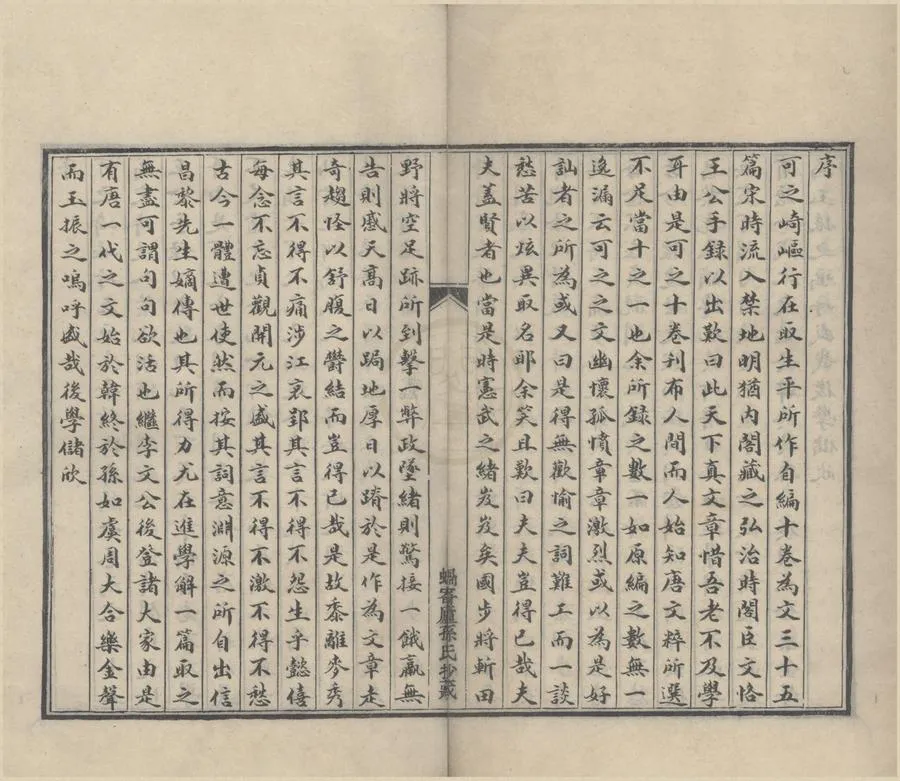 序
可之崎嶇行在取生平所作自編十卷為文三十五
篇宋時流入禁地明猶內閣藏之弘治時閣臣文恪
王公手録以出歎曰此天下真文章惜吾老不及學
耳由是可之十卷刊布人間而人始知唐文粹所選
不足當十之一也余所録之數一如原編之數無一
逸漏云可之之文幽懷孤憤章章激烈或以為是好
訕者之所為或又曰是得無歡愉之詞難工而一談
愁苦以炫異取名耶余笑且歎曰夫夫豈得已哉夫
夫蓋賢者也當是時憲武之緒岌岌矣國步將斬田
蝸寄廬孫氏抄藏
野將空足跡所到擊一弊政墜緒則驚接一餓羸無
告則慼天高日以跼地厚日以蹐於是作為文章走
奇趨怪以舒腹之鬱結而豈得已哉是故黍離麥秀
其言不得不痛涉江哀郢其言不得不怨生乎懿僖
每念不忘貞觀開元之盛其言不得不激不得不愁
古今一體遭世使然而按其詞意淵源之所自出信
昌黎先生嫡傳也其所得力尤在進學解一篇取之
無盡可謂句句欲活也繼李文公後登諸大家由是
有唐一代之文始於韓終於孫如虞周大合樂金聲
而玉振之嗚呼盛哉後學儲欣